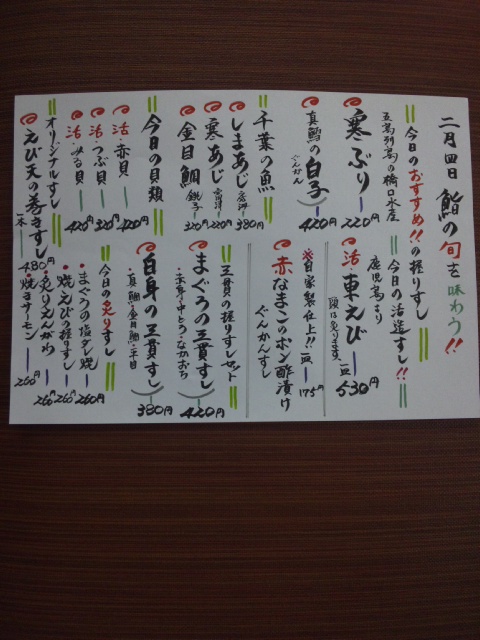 二月四日 鮨の旬を味わう!!
今日のおすすめ!!の握りすし
五島列島の橋口水産
寒ぶり 220円
真鱈の白子 420円
ぐんかん
千葉の魚
しまあじ 380円
寒あじ 富津 220円
金目鯛 銚子 320円
今日の貝類
活・赤貝 420円
活・つぶ貝 320円
活・みる貝 420円
オリジナルすし
えび天の巻きすし 一本 480円
今日の活造すし!!
鹿児島より
活 車えび 530円
頭は炙ります 一皿
※自家製仕上!! 一皿 175円
赤なまこのポン酢漬け
ぐんかんすし
三貫の握りすしセット
まぐろの三貫すし 420円
・赤身・中とろ・なかおち
白身の三貫すし 380円
・真鯛・金目鯛・平目
今日の炙りすし
・まぐろの塩タレ焼 260円
・焼えびの握りすし 260円
・炙りえんがわ 260円
・焼きサーモン 260円